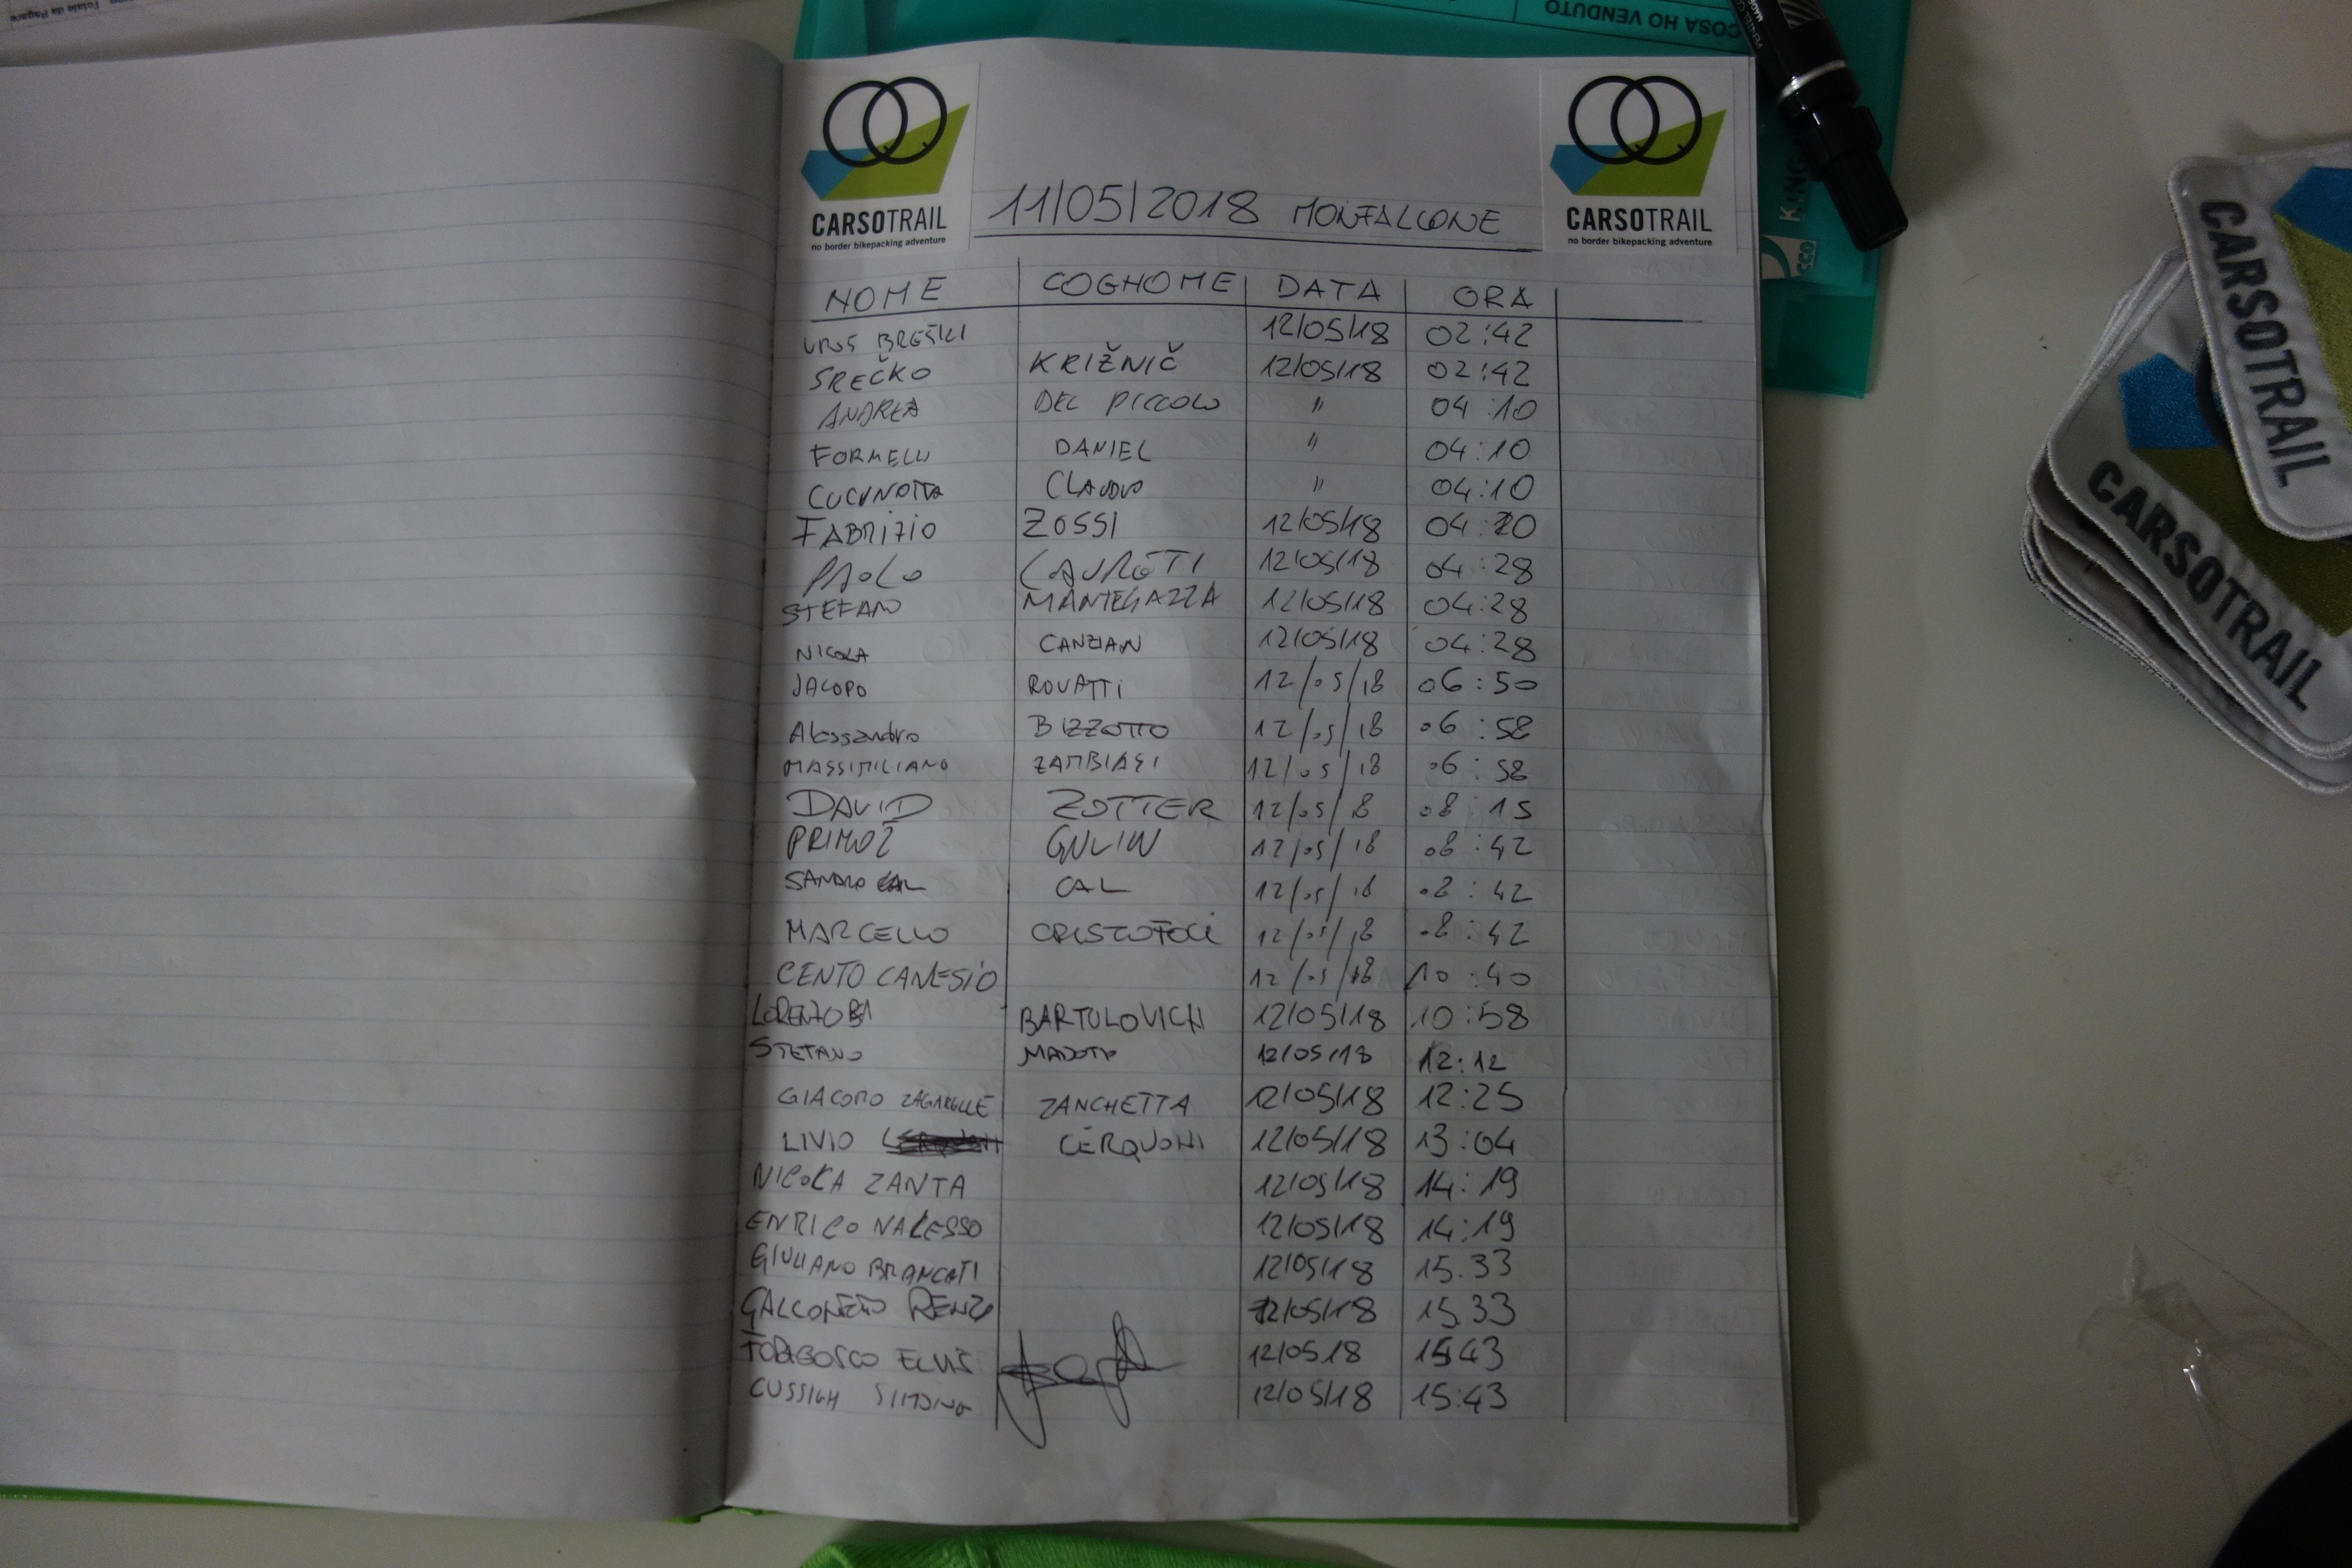 Totale da Pagare
COSA HO VENDUTO
CARSOTRAIL
no border bikepacking adventure
11/05/2018 MONFALCONE
CARSOTRAIL
no border bikepacking adventure
NOME COGNOME DATA ORA
UROŠ BREŠKI 12/05/18 02:42
SREČKO KRIŽNIČ 12/05/18 02:42
ANDREA DEL PICCOLO " 04:10
FORMELLI DANIEL " 04:10
CUCUNOTTA CLAUDIO " 04:10
FABRIZIO ZOSSI 12/05/18 04:20
PAOLO LAURETI 12/05/18 04:28
STEFANO MANTEGAZZA 12/05/18 04:28
NICOLA CANZIAN 12/05/18 04:28
JACOPO ROVATTI 12/05/18 06:50
Alessandro BIZZOTTO 12/05/18 06:58
MASSIMILIANO ZAMBIASI 12/05/18 06:58
DAVID ZOTTER 12/05/18 08:15
PRIMOŽ GULIN 12/05/18 08:42
SANDRO CAL 12/05/18 08:42
MARCELLO CRISTOFOLI 12/05/18 08:42
CENTO CANESIO 12/05/18 10:40
LORENZO BARTOLOVICH 12/05/18 10:58
STEFANO 12/05/18 12:12
GIACOMO ZAGARELLE ZANCHETTA 12/05/18 12:25
LIVIO CERQUONI 12/05/18 13:04
NICOLA ZANTA 12/05/18 14:19
ENRICO NALESSO 12/05/18 14:19
GIULIANO BRANCATI 12/05/18 15.33
RENZO 12/05/18 15.33
ELVIS 12/05/18 15 43
CUSSIGH SIMONA 12/05/18 15:43
CARSOTRAIL
CARSOTRAIL